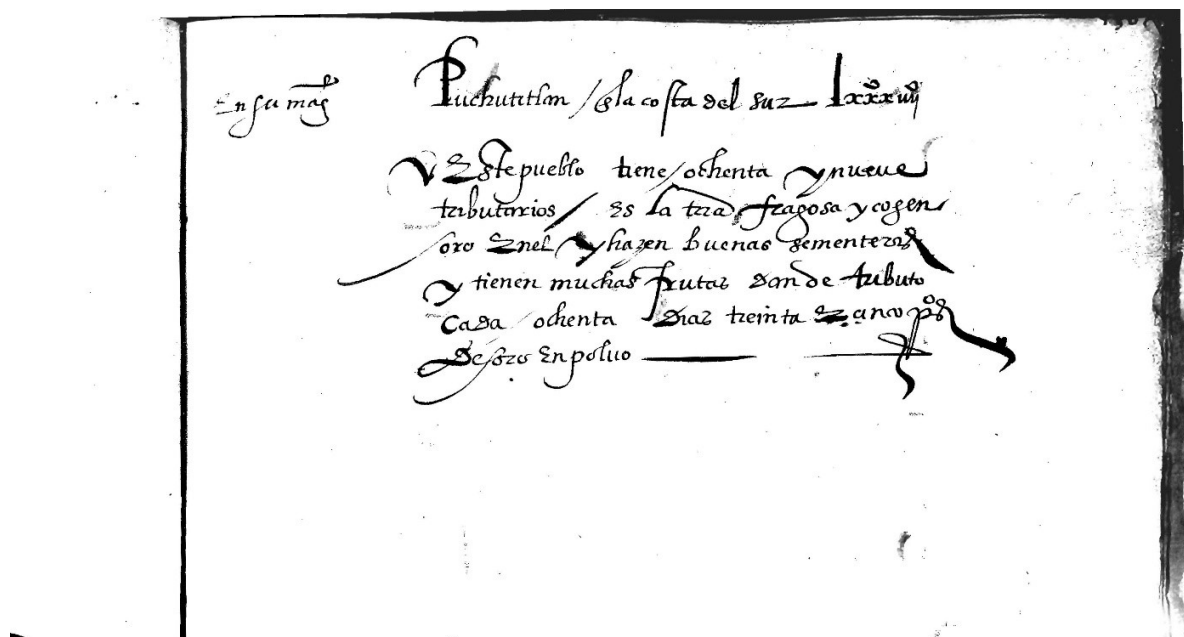 En su mag
Puchutitlan / en la costa del sur lxxxviiij
Este pueblo tiene / ochenta y nueve
tributarios / es la trra fragosa y cogen
oro enel y hazen buenas sementeras
y tienen muchas frutas dan de tributo
cada ochenta dias treinta e çinco pºs
de oro en polvo